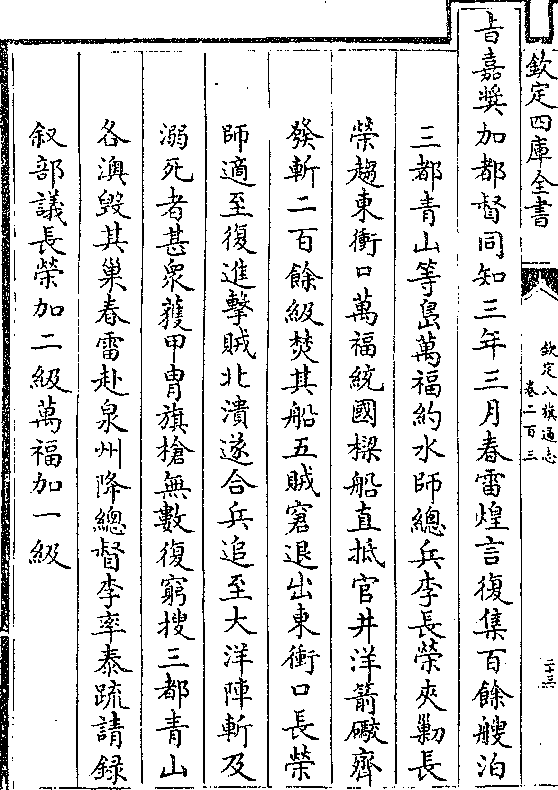 欽定四庫全書
欽定八旗通志
卷二百三
二十三
旨嘉奬加都督同知三年三月春雷煌言復集百餘艘泊
三都青山等島萬福約水師總兵李長榮夾勦長
榮趨東衝口萬福統國樑船直抵官井洋箭礮齊
發斬二百餘級焚其船五賊窘退出東衝口長榮
師適至復進擊賊北潰遂合兵追至大洋陣斬及
溺死者甚衆獲甲胄旗槍無數復窮搜三都青山
各澳毀其巢春雷赴泉州降總督李率泰䟽請錄
叙部議長榮加二級萬福加一級